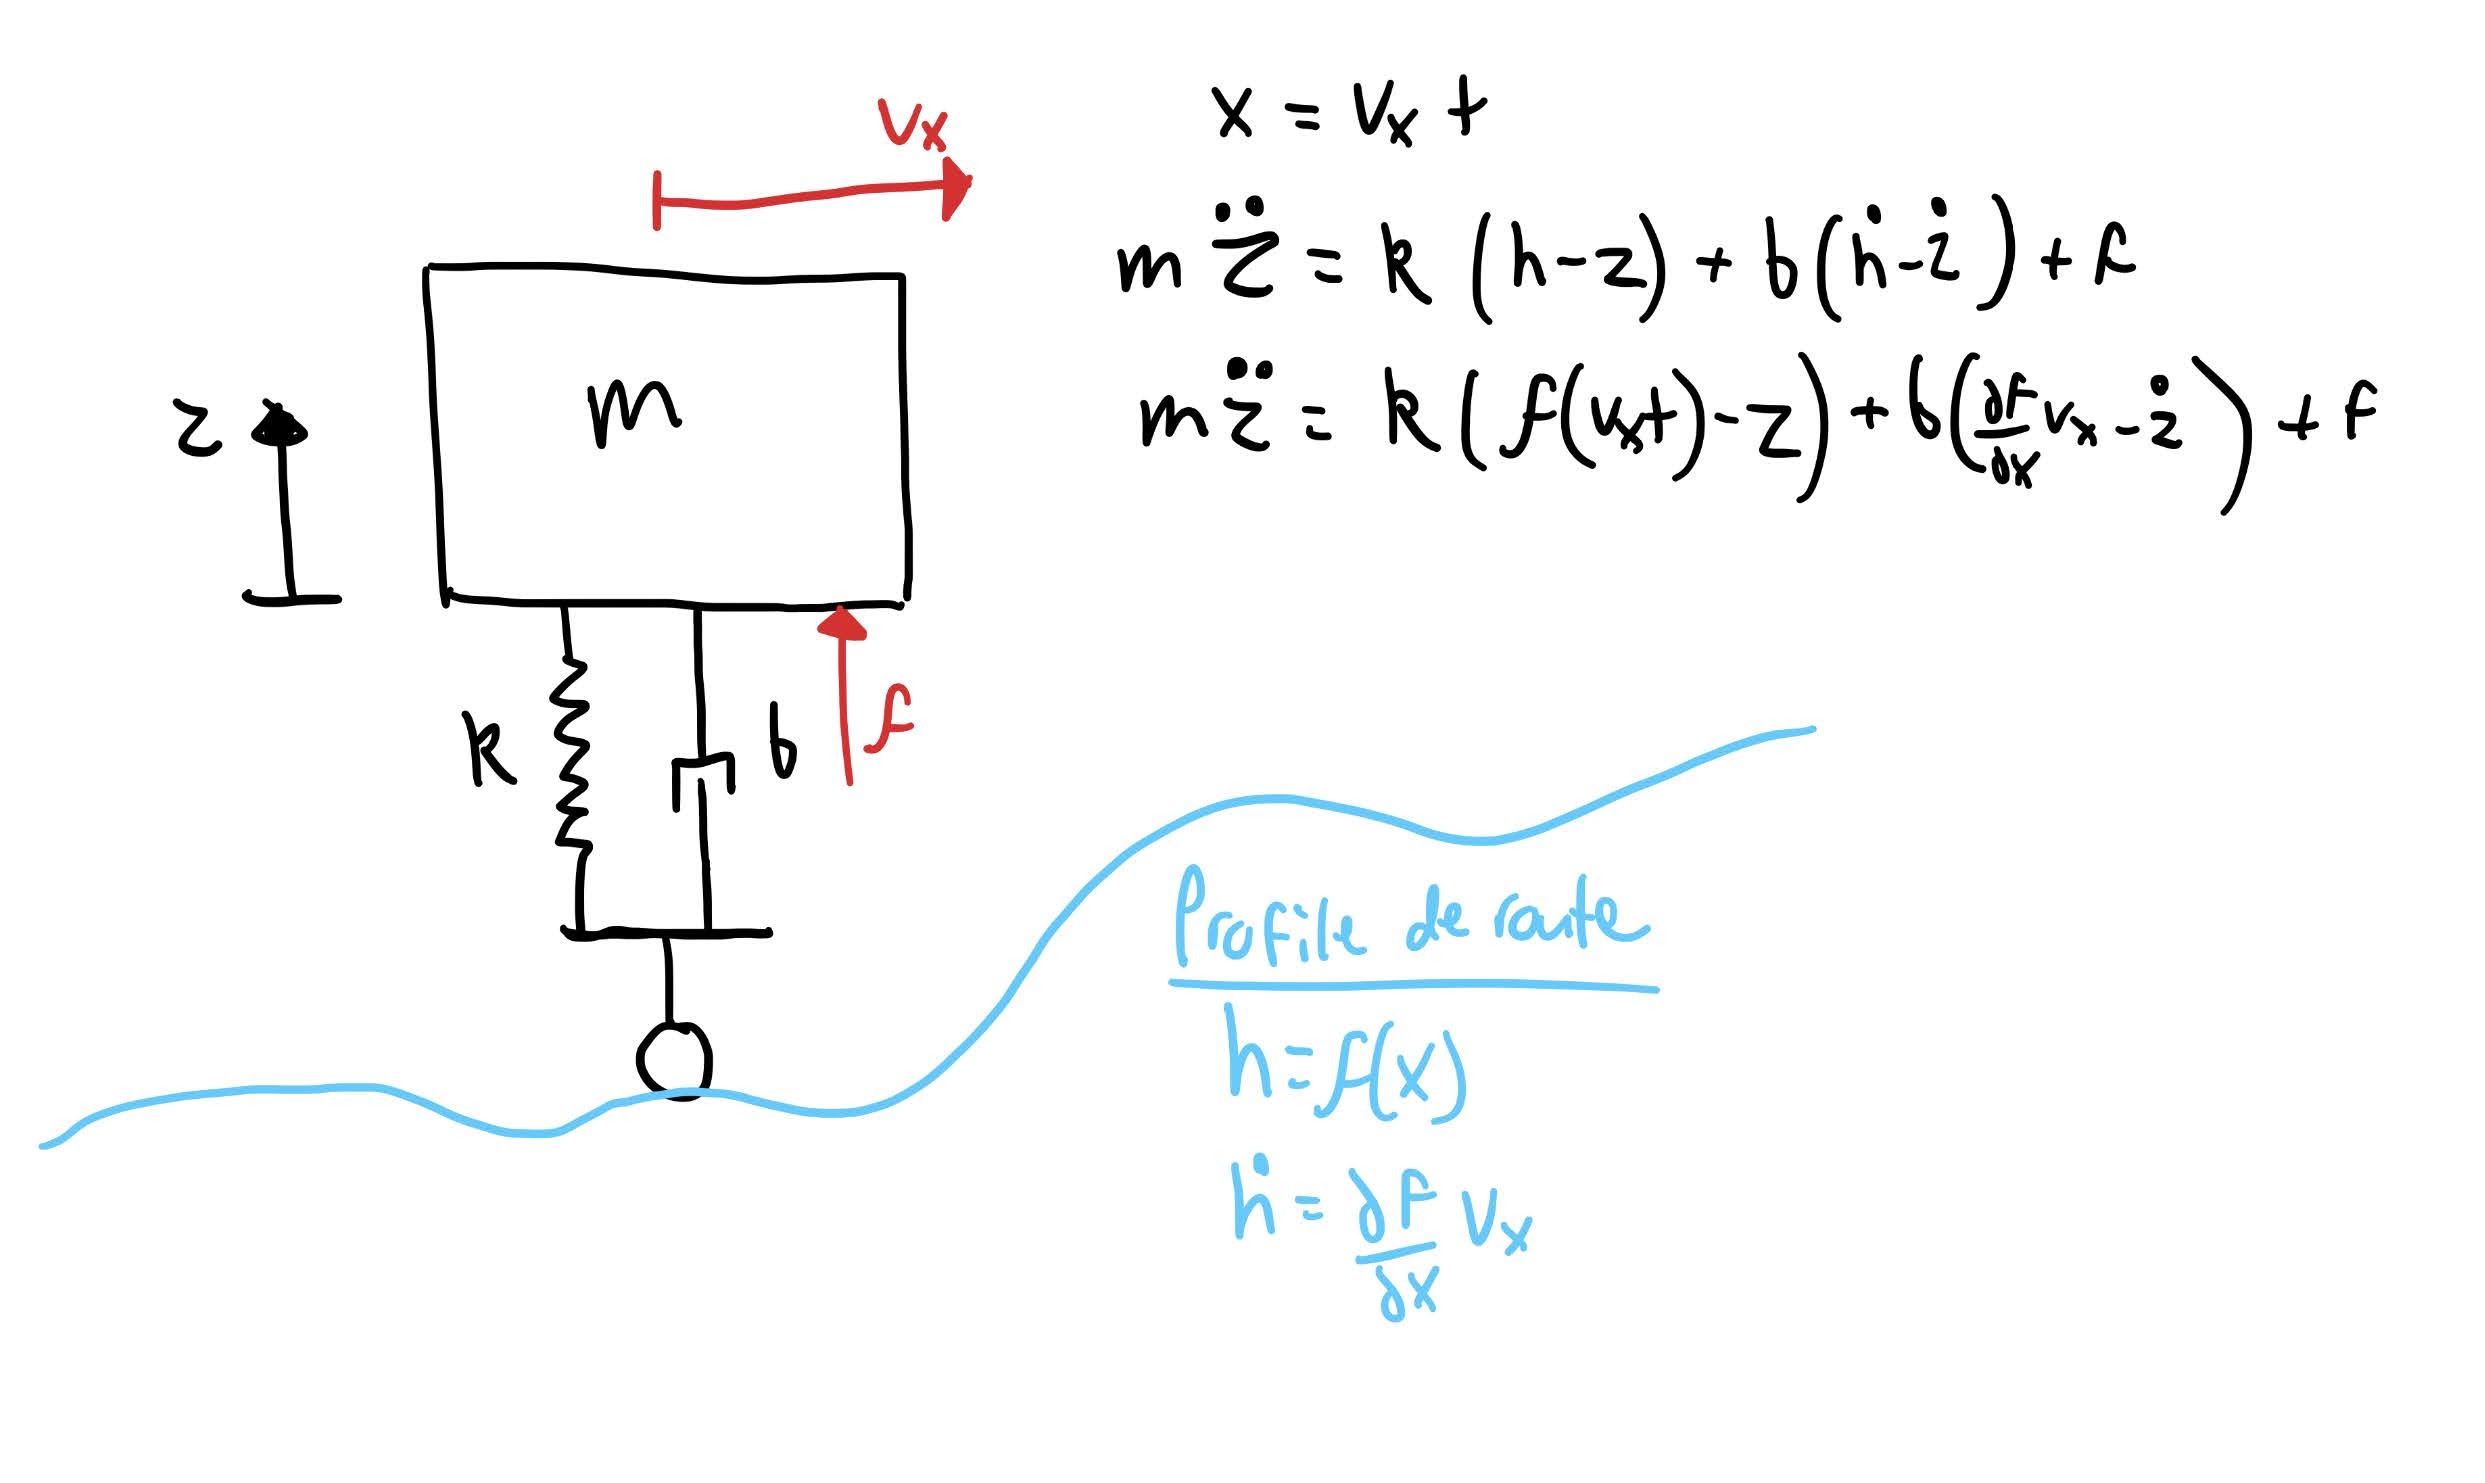 v_x
x = v_x t
m z̈ = k (h - z) + b(ḣ - ż) + f
m z̈ = k(f(v_x t) - z) + b(∂f/∂x v_x - ż) + f
z
m
k
b
f
Profile de route
h = f(x)
ḣ = ∂f/∂x v_x